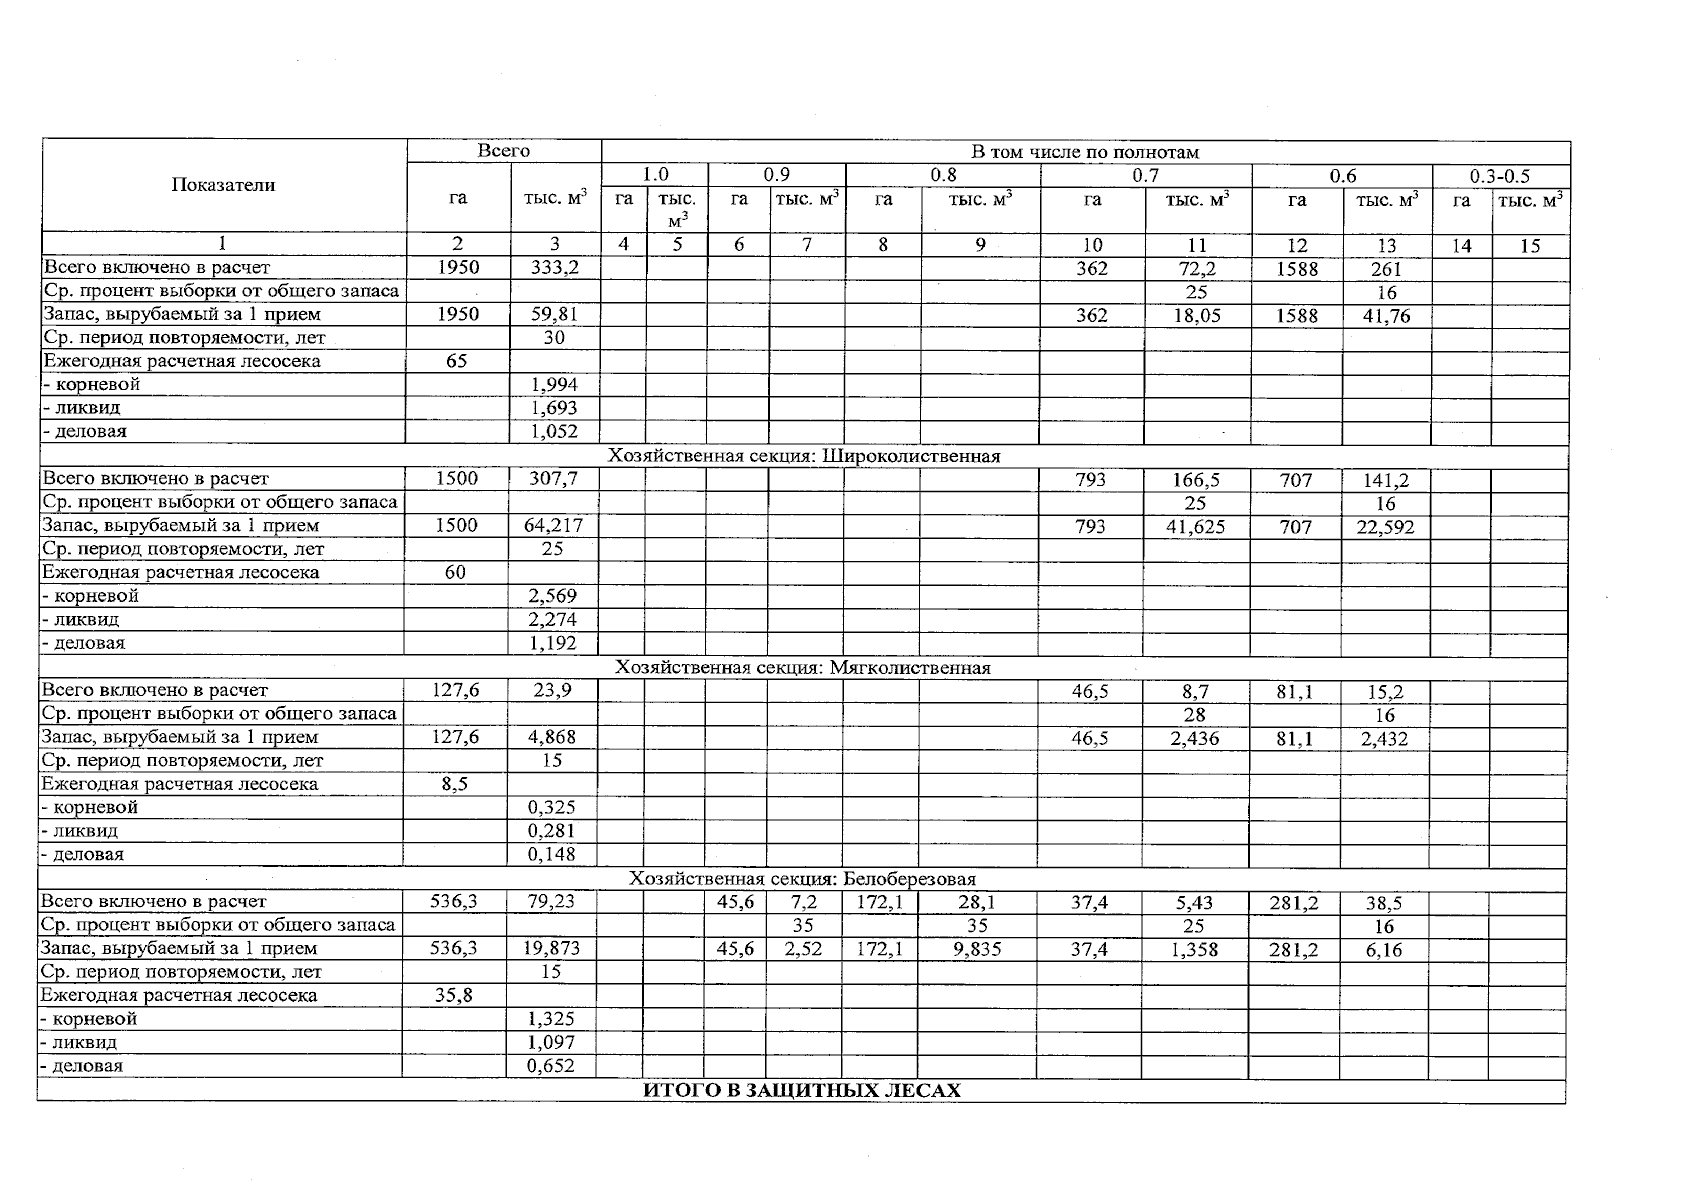 Показатели Всего В том числе по полнотам
га тыс. м³ 1.0 0.9 0.8 0.7 0.6 0.3-0.5
га тыс. м³ га тыс. м³ га тыс. м³ га тыс. м³ га тыс. м³ га тыс. м³
1 2 3 4 5 6 7 8 9 10 11 12 13 14 15
Всего включено в расчет 1950 333,2 362 72,2 1588 261
Ср. процент выборки от общего запаса 25 16
Запас, вырубаемый за 1 прием 1950 59,81 362 18,05 1588 41,76
Ср. период повторяемости, лет 30
Ежегодная расчетная лесосека 65
- корневой 1,994
- ликвид 1,693
- деловая 1,052
Хозяйственная секция: Широколиственная
Всего включено в расчет 1500 307,7 793 166,5 707 141,2
Ср. процент выборки от общего запаса 25 16
Запас, вырубаемый за 1 прием 1500 64,217 793 41,625 707 22,592
Ср. период повторяемости, лет 25
Ежегодная расчетная лесосека 60
- корневой 2,569
- ликвид 2,274
- деловая 1,192
Хозяйственная секция: Мягколиственная
Всего включено в расчет 127,6 23,9 46,5 8,7 81,1 15,2
Ср. процент выборки от общего запаса 28 16
Запас, вырубаемый за 1 прием 127,6 4,868 46,5 2,436 81,1 2,432
Ср. период повторяемости, лет 15
Ежегодная расчетная лесосека 8,5
- корневой 0,325
- ликвид 0,281
- деловая 0,148
Хозяйственная секция: Белоберезовая
Всего включено в расчет 536,3 79,23 45,6 7,2 172,1 28,1 37,4 5,43 281,2 38,5
Ср. процент выборки от общего запаса 35 35 25 16
Запас, вырубаемый за 1 прием 536,3 19,873 45,6 2,52 172,1 9,835 37,4 1,358 281,2 6,16
Ср. период повторяемости, лет 15
Ежегодная расчетная лесосека 35,8
- корневой 1,325
- ликвид 1,097
- деловая 0,652
ИТОГО В ЗАЩИТНЫХ ЛЕСАХ